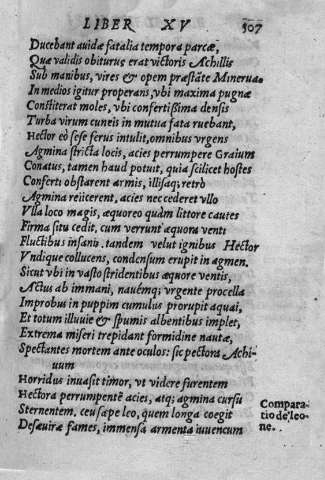 LIBER XV 507
Ducebant auidæ fatalia tempora parcæ,
Quæ validis obiturus erat victoris Achillis
Sub manibus, vires & opem præstāte Minerua.
In medios igitur properans, vbi maxima pugnæ
Constiterat moles, vbi confertißima densis
Turba virum cuneis in mutua fata ruebant,
Hector eò sese ferus intulit, omnibus vrgens
Agmina stricta locis, acies perrumpere Graium
Conatus, tamen haud potuit, quia scilicet hostes
Conferti obstarent armis, illisaq; retrò
Agmina reijcerent, acies nec cederet vllo
Vlla loco magis, æquoreo quàm littore cautes
Firma situ cedit, cum verrunt æquora venti
Fluctibus insanis. tandem velut ignibus Hector
Vndique collucens, condensum erupit in agmen.
Sicut vbi in vasto stridentibus æquore ventis,
Actus ab immani, nauémq; vrgente procella
Improbus in puppim cumulus prorupit aquai,
Et totum illuuie & spumis albentibus implet,
Extrema miseri trepidant formidine nautæ,
Spectantes mortem ante oculos: sic pectora Achi-
uum
Horridus inuasit timor, vt videre furentem
Hectora perrumpentē acies, atq; agmina cursu
Sternentem. ceu sæpe leo, quem longa coegit
Desæuire fames, immensa armenta iuuencum
Compara-
tio de leo-
ne.